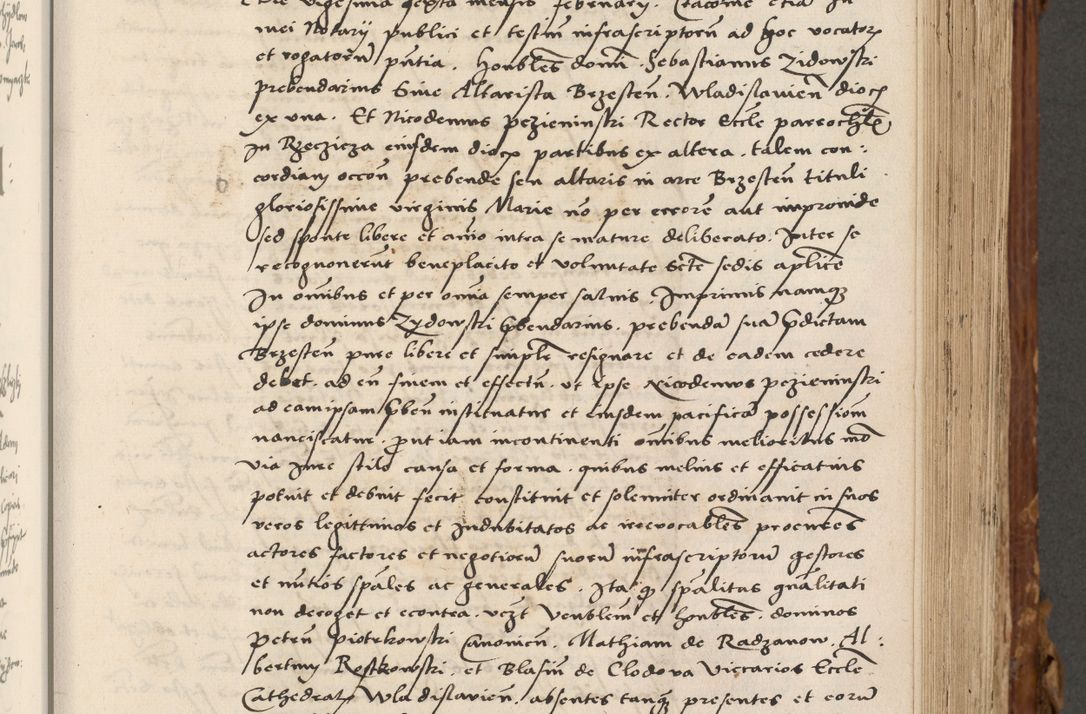 Die vigesima sexta mensis februarii. Cracovie etia In
mei Notarii publici et testiu infrascriptoru ad hoc vocatoru
et rogatoru pntia. Honbles domi Sebastianus Zidowski
prebendarius Sive Altarista Brzesten. Wladislavien dioc
ex una. Et Nicodemus pezieninski Rector Eccle parrochle
In Rzeczicza eiusdem dioc partibus ex altera. talem con:
cordiam occon prebende seu altaris in arce Brzesten tituli
gloriosissime virginis Marie no per errore aut improvide
sed sponte libere et aio intra se mature deliberato. Inter se
recognoverut beneplacito et volutate scte sedis aplice
In omibus et per omia semper salvis. Imprimis namq
ipse dominus Zydowski pbendarius. prebenda sua pdictam
Brzesten pure libere et simplr resignare et de eadem cedere
debet. ad eu finem et effectu. ut ipse Nicodemus pezieninski
ad eam ipsam pben instituatur et eiusdem pacifica possessiom
nanciscatur. put iam incontinenti omibus melioribus mo
via iure stilo causa et forma. quibus melius et efficatius
potuit et debuit fecit constituit et solemniter ordinavit in suos
veros legittimos et Indubitatos ac irrevocables procutres
actores factores et negotioru suoru infrascriptoru gestores
et nutios spales ac generales. Ita q spalitas gnalitati
non deroget et econtra. vezt Venblem et honbles. dominos
Petru piotrkowski Canonicu. Mathiam de Radzanow. Al:
bertum Rostkowski. et Blasiu de Clodova Viccarios Eccle
Cathedral Wladislavien. absentes tanq presentes et eoru